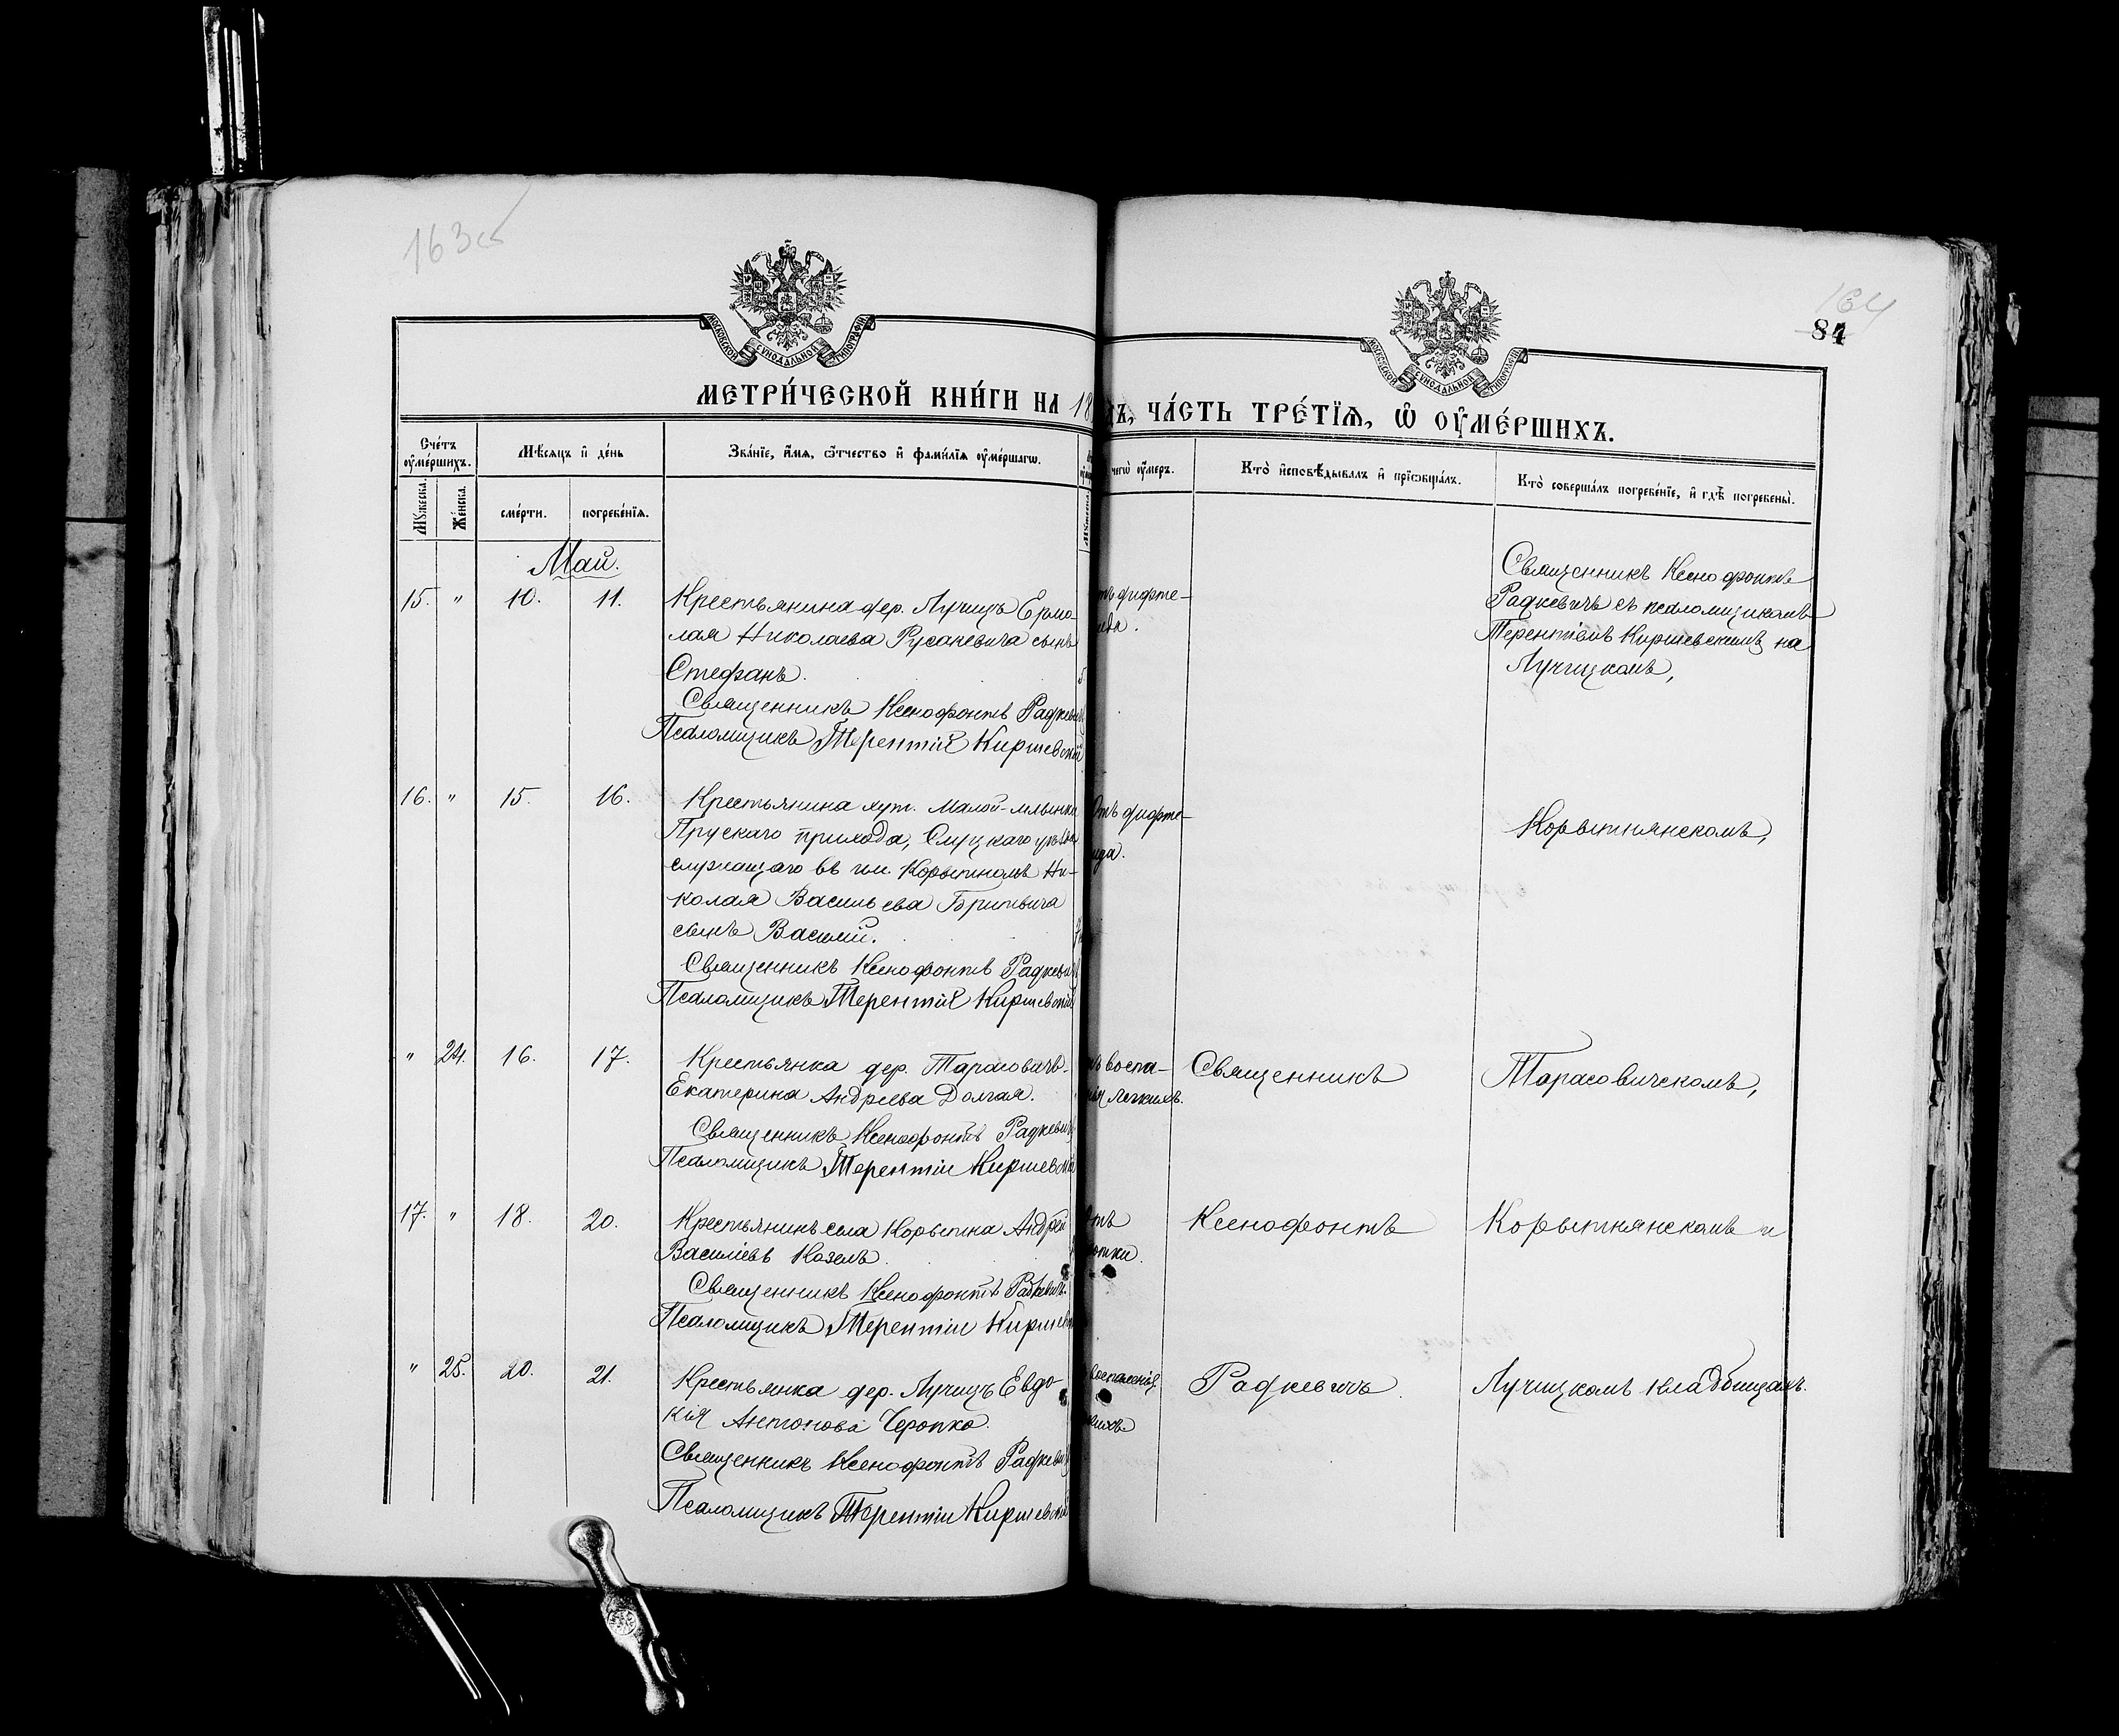 163об
164
84
МОСКОВСКОЙ СѴНОДАЛЬНОЙ ТИПОГРАФІИ
МОСКОВСКОЙ СѴНОДАЛЬНОЙ ТИПОГРАФІИ
МЕТРИ́ЧЕСКОЙ КНИ́ГИ НА 18
ДЪ, ЧА́СТЬ ТРЕ́ТЇѦ, Ѡ҆ ОУ҆МЕ́РШИХЪ.
Сче́тъ оу҆ме́ршихъ.
Мѣ́сѧцъ и҆ де́нь
Зва́нїе, и҆́мѧ, ѻ҆́тчество и҆ фами́лїѧ оу҆ме́ршагѡ.
чегѡ̀ оу҆́меръ.
Кто̀ и҆сповѣ́дывалъ и҆ прїѡбща́лъ.
Кто̀ соверша́лъ погребе́нїе, и҆ гдѣ̀ погребены̀.
Мꙋ́жеска.
Же́нска.
сме́рти.
погребе́нїѧ.
Май.
15. " 10. 11.
Крестьянина дер. Лучицъ Ермо-
лая Николаева Русакевича сынъ
Стефанъ.
5.
Священникъ Ксенофонтъ Радкевичъ
Псаломщикъ Терентій Киршевскій
тъ дифте-
ида.
Священникъ Ксенофонтъ
Радкевичъ съ псаломщикомъ
Терентіемъ Киршевскимъ на
Лучицкомъ,
16. " 15. 16.
Крестьянина хут. Малой-мльынки
Прускаго прихода, Слуцкаго уѣзда
служащаго въ им. Корытномъ Ни-
колая Васильева
сынъ Василій.
Священникъ Ксенофонтъ Радкевичъ
Псаломщикъ Терентій Киршевскій
Отъ дифте-
ида.
Корытнянскомъ,
" 24. 16. 17.
Крестьянка дер. Тарасовичъ
Екатерина Андреева Долгая.
Священникъ Ксенофонтъ Радкевичъ
Псаломщикъ Терентій Киршевскій
ъ воспа-
ія легкихъ.
Священникъ
Тарасовичскомъ,
17. " 18. 20.
Крестьянинъ села Корытна Андрей
Василіевъ Козелъ.
Священникъ Ксенофонтъ Радкевичъ
Псаломщикъ Терентій Киршевскій
Отъ
отки.
Ксенофонтъ
Корытнянскомъ и
" 25. 20. 21.
Крестьянка дер. Лучицъ Евдо-
кія Антонова Черопко.
Священникъ Ксенофонтъ Радкевичъ
Псаломщикъ Терентій Киршевскій
воспаленія
Радкевичъ.
Лучицкомъ кладбищахъ.